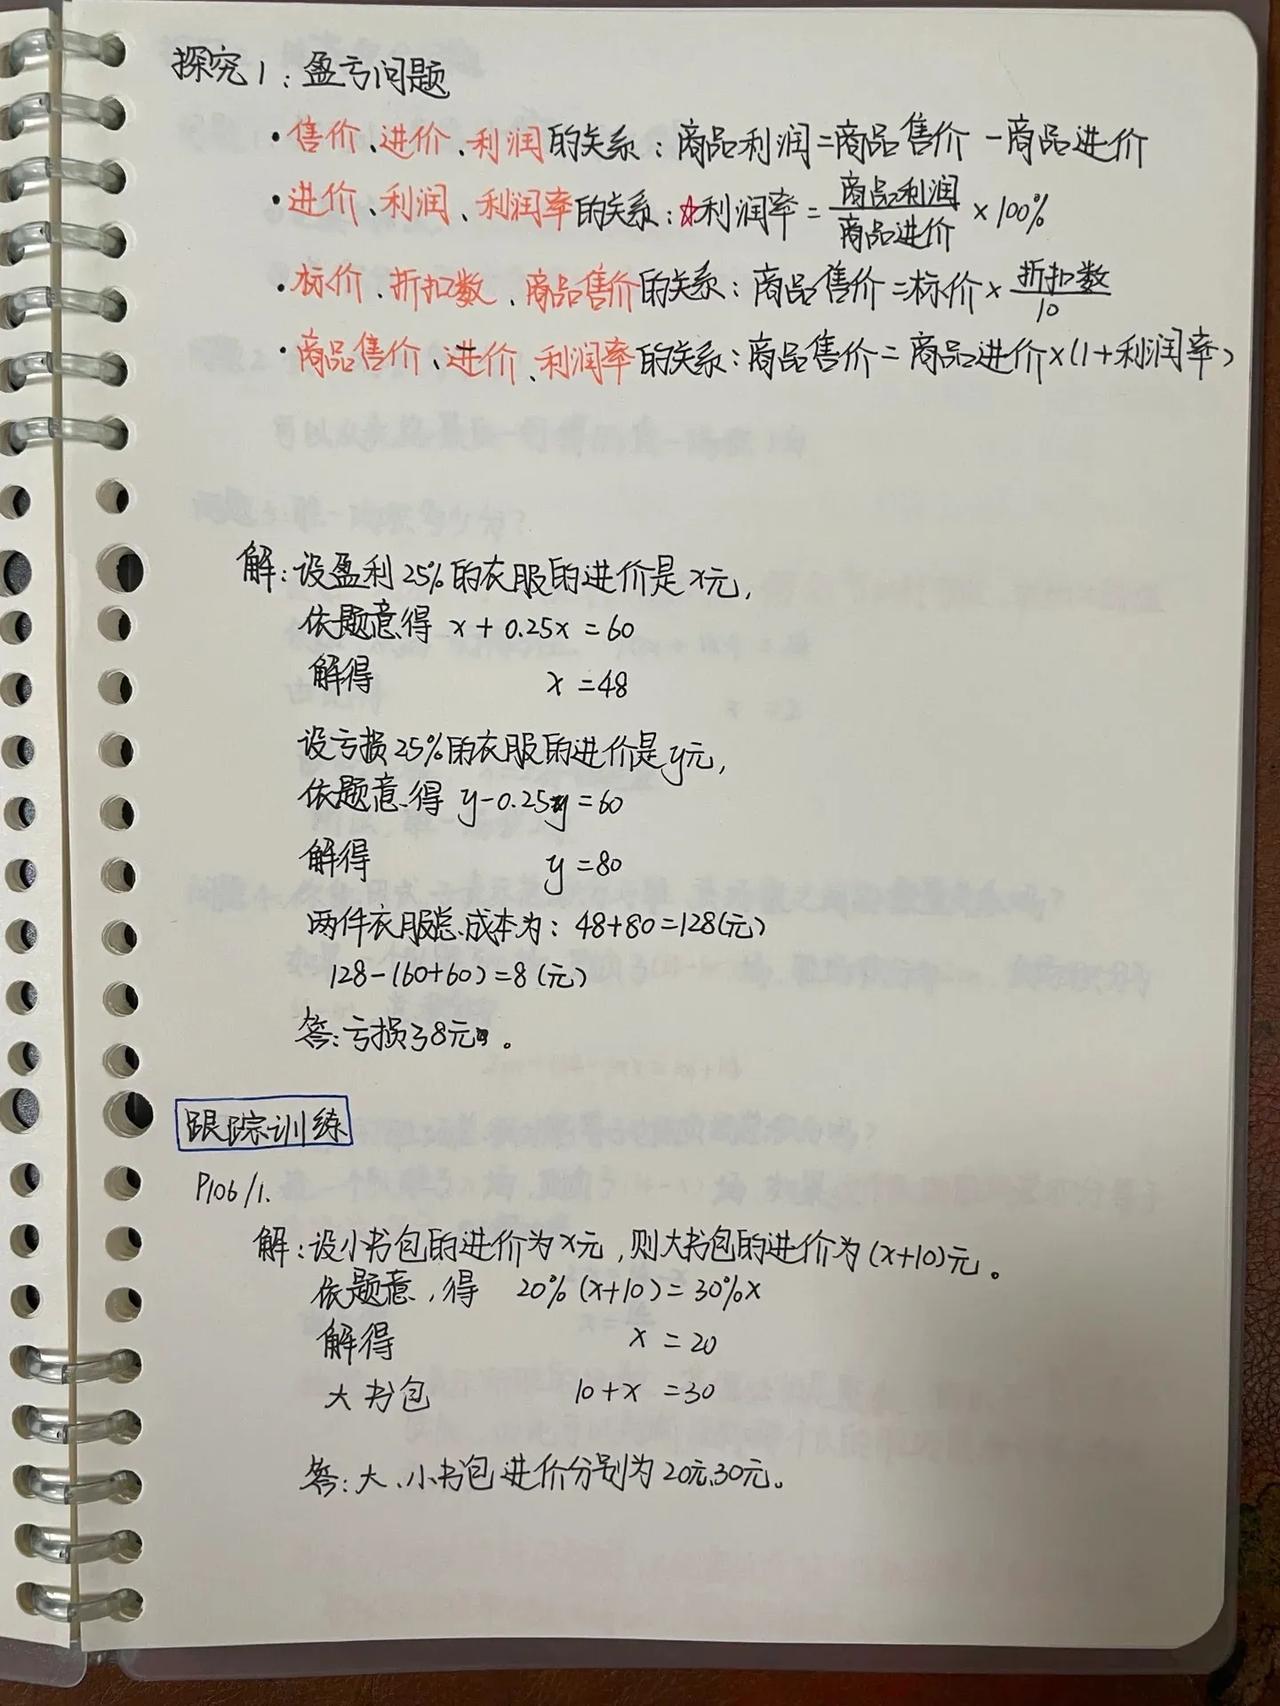 探究1：盈亏问题
·售价、进价、利润的关系：商品利润=商品售价-商品进价
·进价、利润、利润率的关系：☆利润率=商品利润/商品进价×100%
·标价、折扣数、商品售价的关系：商品售价=标价×折扣数/10
·商品售价、进价、利润率的关系：商品售价=商品进价×(1+利润率)
解：设盈利25%的衣服的进价是x元，
依题意得 x+0.25x=60
解得 x=48
设亏损25%的衣服的进价是y元，
依题意得 y-0.25y=60
解得 y=80
两件衣服总成本为：48+80=128(元)
128-(60+60)=8(元)
答：亏损了8元。
跟踪训练
P106/1.
解：设小书包的进价为x元，则大书包的进价为(x+10)元。
依题意，得 20%(x+10)=30%x
解得 x=20
大书包 10+x=30
答：大、小书包进价分别为20元、30元。